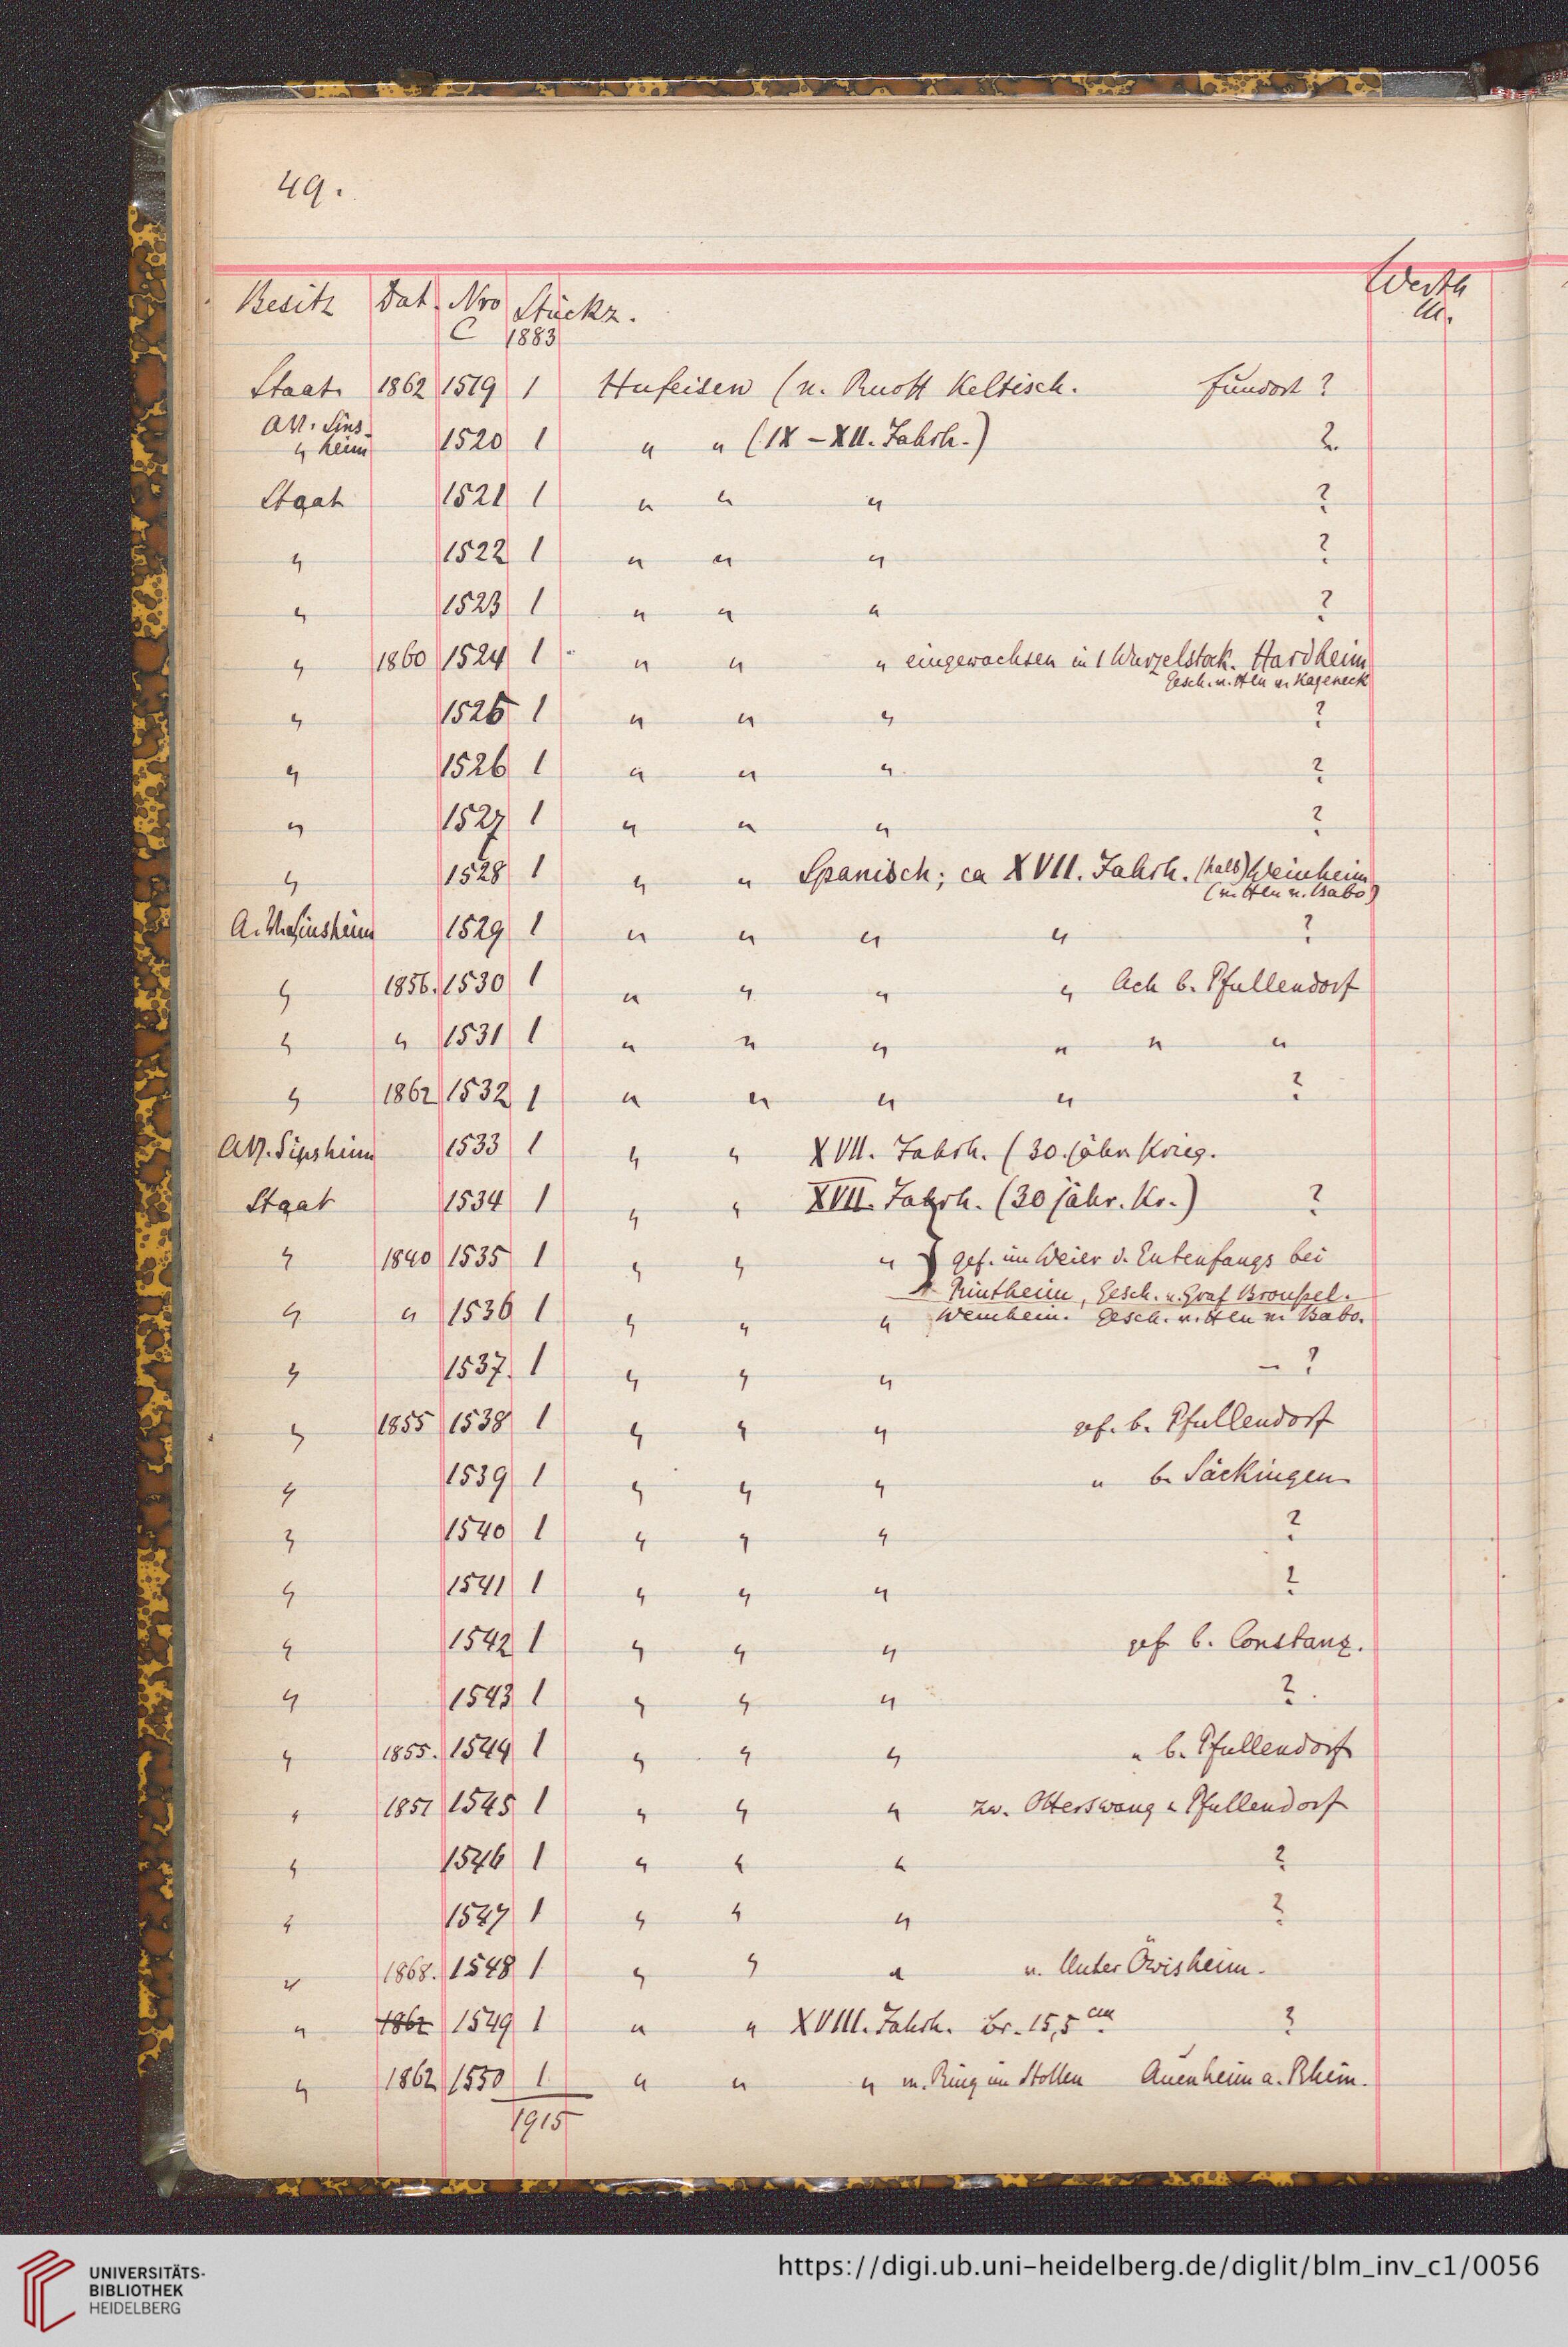 49.
Besitz Dat. Nro Stückz. Werth
C 1883 M.
Staat. 1862 1519 1 Hufeisen (n. Ruoff Keltisch. Fundort ?
AV. Sins-
" heim 1520 1 " " (IX - XII. Jahrh.) ?
Staat 1521 1 " " " ?
" 1522 1 " " " ?
" 1523 1 " " " ?
" 1860 1524 1 " " " eingewachsen in 1 Wurzelstock. Hardheim
Gesch. v. Hen v. Kageneck
" 1525 1 " " " ?
" 1526 1 " " " ?
" 1527 1 " " " ?
" 1528 1 " " Spanisch; ca XVII. Jahrh. (halb) Weinheim
(v. Hen v. Babo)
A. V. Sinsheim 1529 1 " " " " ?
" 1856. 1530 1 " " " " Ach b. Pfullendorf
" " 1531 1 " " " " " "
" 1862 1532 1 " " " " ?
AV. Sinsheim 1533 1 " " XVII. Jahrh. (30. jähr. Krieg.
Staat 1534 1 " " XVII. Jahrh. (30 jähr. Kr.) ?
" 1840 1535 1 " " " } gef. im Weier d. Entenfangs bei
Rintheim, Gesch. v. Graf Broussel.
" " 1536 1 " " " Weinheim. Gesch. v. Hen v. Babo.
" 1537. 1 " " " - ?
" 1855 1538 1 " " " gef. b. Pfullendorf
" 1539 1 " " " " b. Säckingen
" 1540 1 " " " ?
" 1541 1 " " " ?
" 1542 1 " " " gef. b. Constanz.
" 1543 1 " " " ?
" 1855. 1544 1 " " " " b. Pfullendorf
" 1851 1545 1 " " " zw. Otterswang u Pfullendorf
" 1546 1 " " " ?
" 1547 1 " " " ?
" 1868. 1548 1 " " " v. Unter Öwisheim.
" 1862 1549 1 " " XVIII. Jahrh. Br. 15,5 cm ?
" 1862 1550 1 " " " m. Ring im Stollen Auenheim a. Rhein.
1915
UNIVERSITÄTS-
BIBLIOTHEK
HEIDELBERG
https://digi.ub.uni-heidelberg.de/diglit/blm_inv_c1/0056